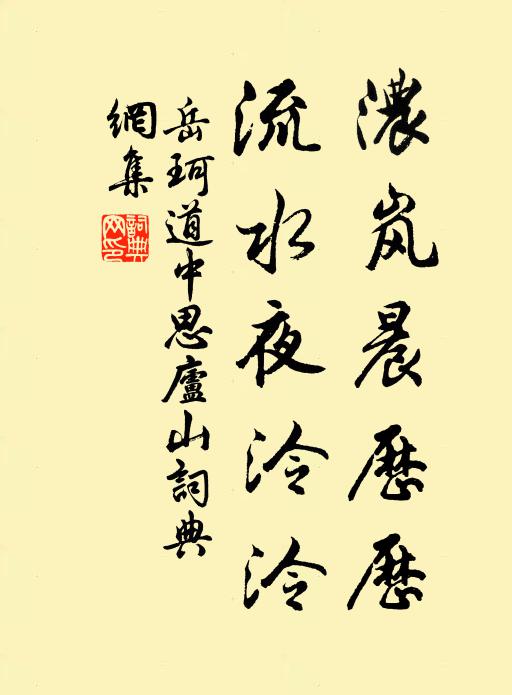 濃岚晨歷歷
流水夜泠泠
岳珂道中思廬山詞典
網集
詞典網印